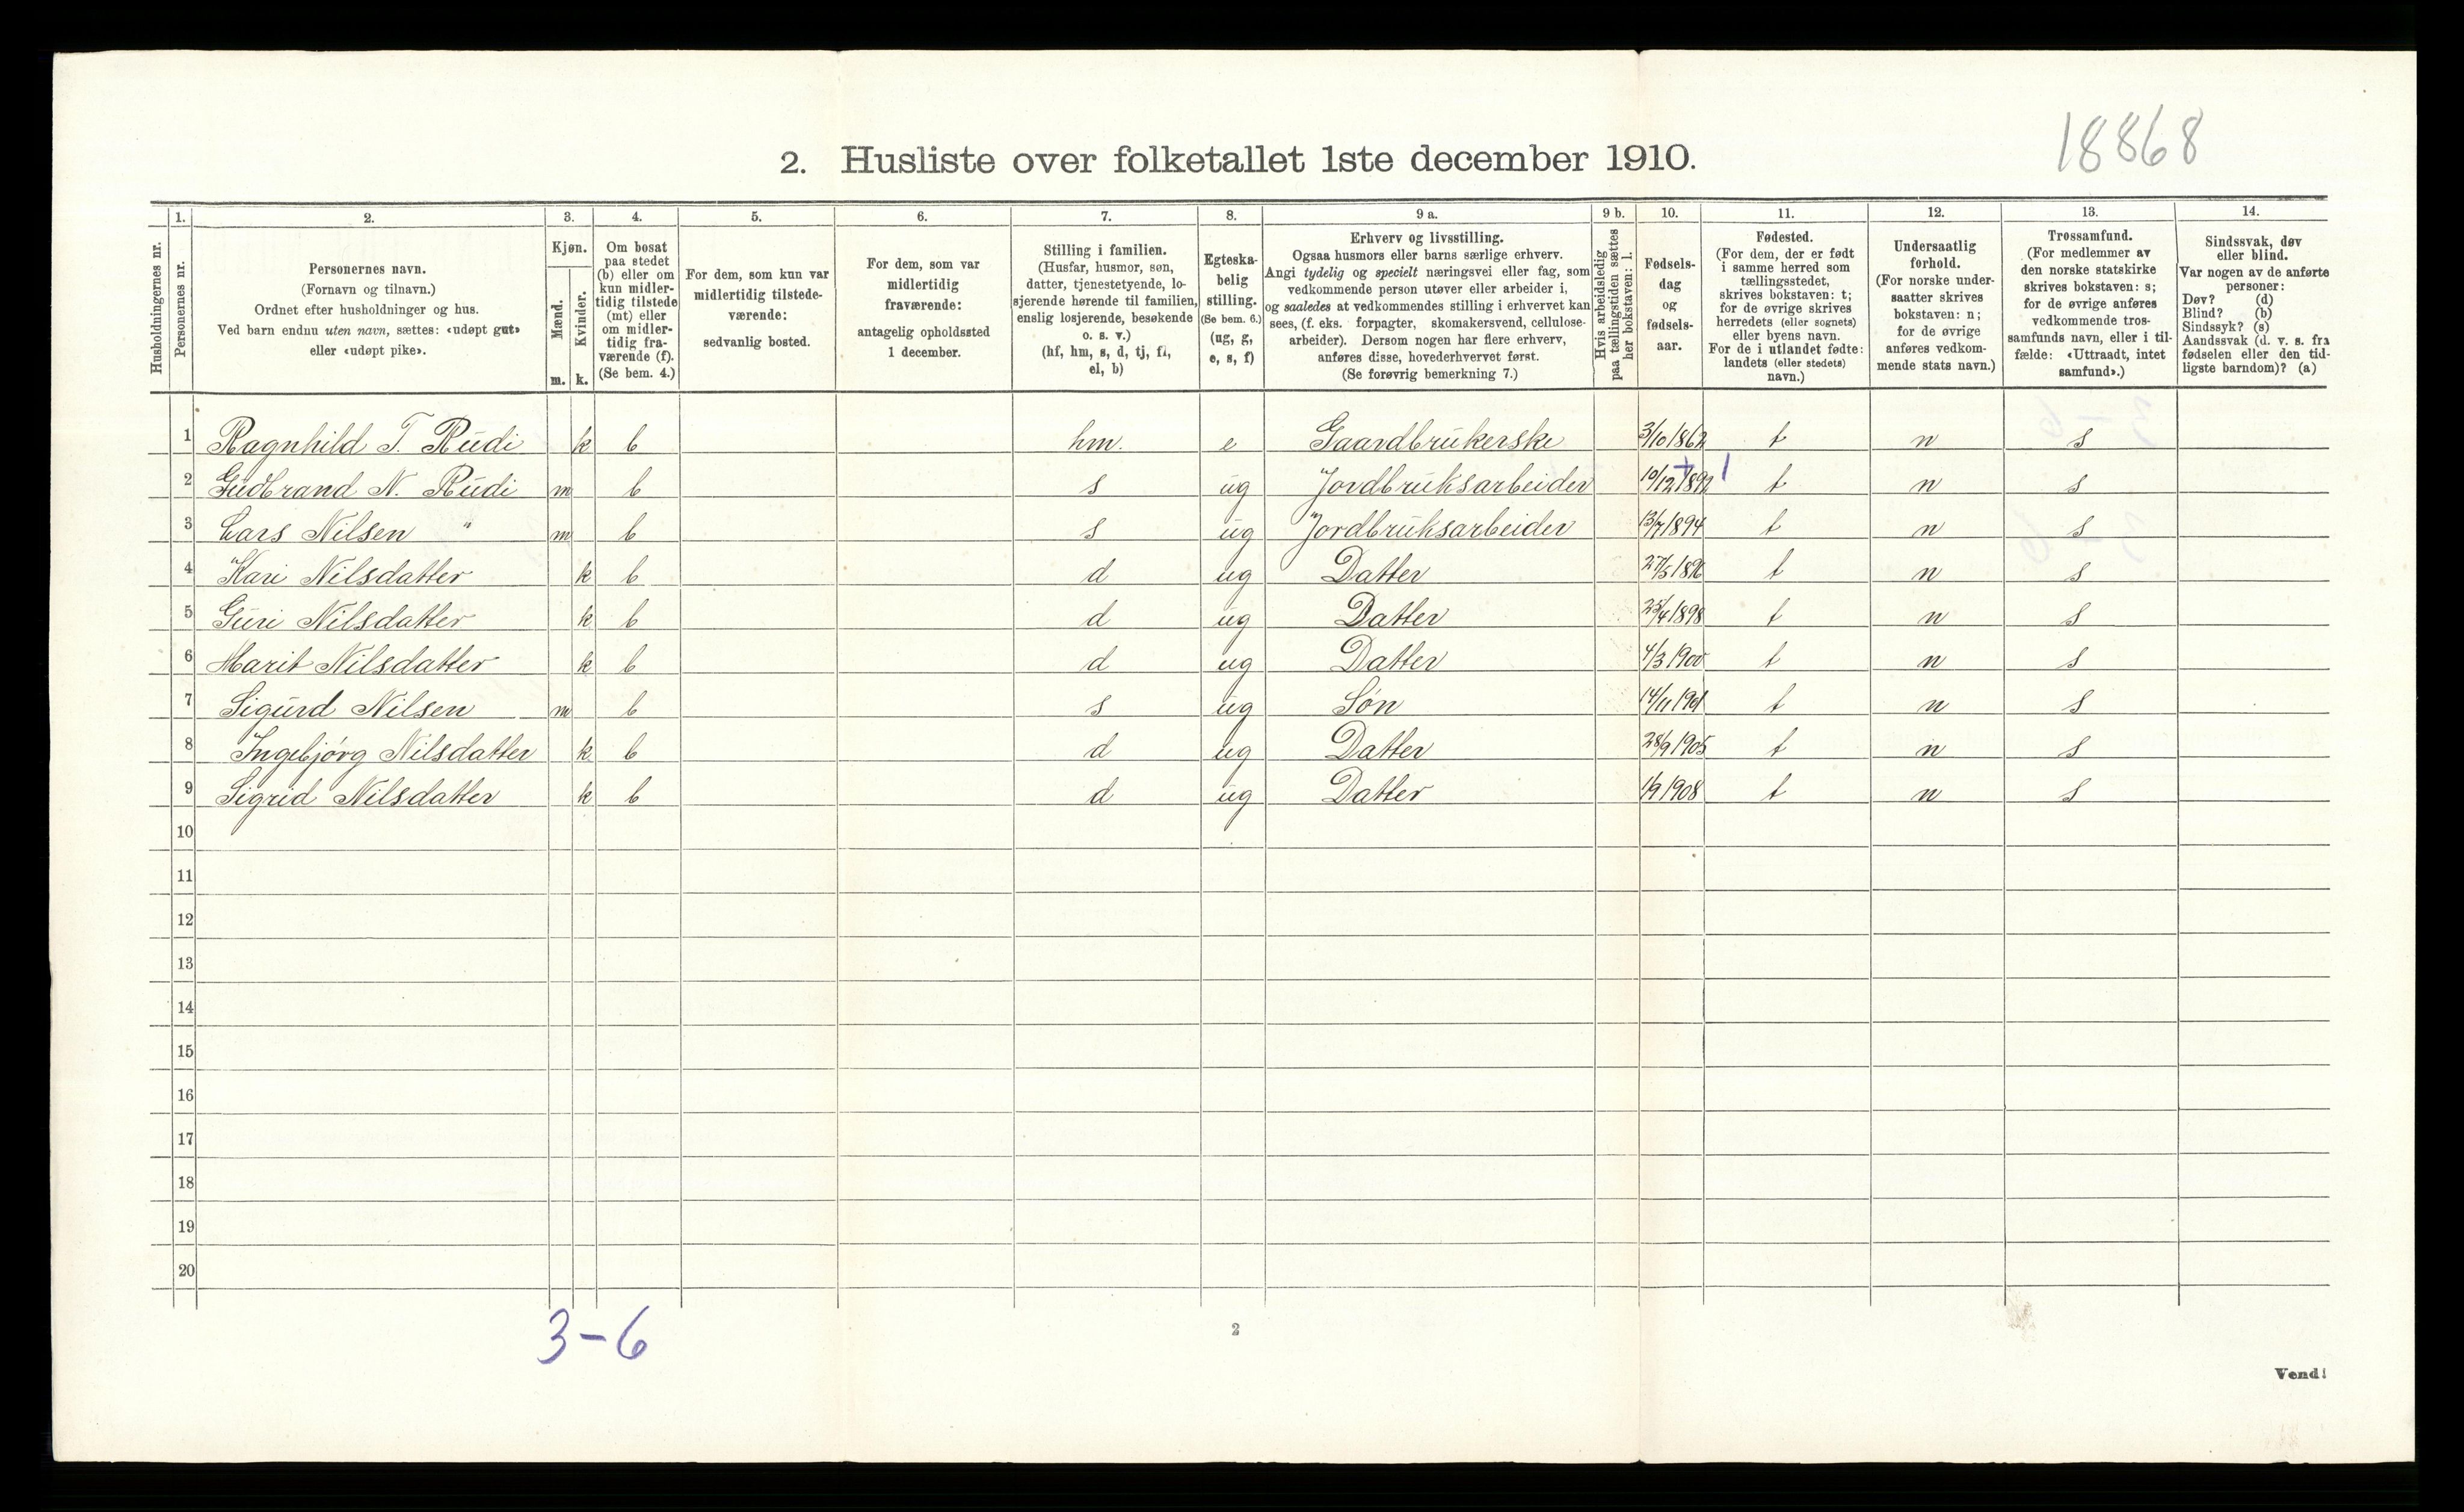 18868
2. Husliste over folketallet 1ste december 1910.
1. 2. 3. 4. 5. 6. 7. 8. 9 a. 9 b. 10. 11. 12. 13. 14.
Husholdningernes nr.
Personernes nr.
Personernes navn.
(Fornavn og tilnavn.)
Ordnet efter husholdninger og hus.
Ved barn endnu uten navn, sættes: «udøpt gut»
eller «udøpt pike».
Kjøn.
Mænd.
Kvinder.
m. k.
Om bosat
paa stedet
(b) eller om
kun midler-
tidig tilstede
(mt) eller
om midler-
tidig fra-
værende (f).
(Se bem. 4.)
For dem, som kun var
midlertidig tilstede-
værende:
sedvanlig bosted.
For dem, som var
midlertidig
fraværende:
antagelig opholdssted
1 december.
Stilling i familien.
(Husfar, husmor, søn,
datter, tjenestetyende, lo-
sjerende hørende til familien,
enslig losjerende, besøkende
o. s. v.)
(hf, hm, s, d, tj, fl,
el, b)
Egteska-
belig
stilling.
(Se bem. 6.)
(ug, g,
e, s, f)
Erhverv og livsstilling.
Ogsaa husmors eller barns særlige erhverv.
Angi tydelig og specielt næringsvei eller fag, som
vedkommende person utøver eller arbeider i,
og saaledes at vedkommendes stilling i erhvervet kan
sees, (f. eks. forpagter, skomakersvend, cellulose-
arbeider). Dersom nogen har flere erhverv,
anføres disse, hovederhvervet først.
(Se forøvrig bemerkning 7.)
Hvis arbeidsledig
paa tællingstiden sættes
her bokstaven: l.
Fødsels-
dag
og
fødsels-
aar.
Fødested.
(For dem, der er født
i samme herred som
tællingsstedet,
skrives bokstaven: t;
for de øvrige skrives
herredets (eller sognets)
eller byens navn.
For de i utlandet fødte:
landets (eller stedets)
navn.)
Undersaatlig
forhold.
(For norske under-
saatter skrives
bokstaven: n;
for de øvrige
anføres vedkom-
mende stats navn.)
Trossamfund.
(For medlemmer av
den norske statskirke
skrives bokstaven: s;
for de øvrige anføres
vedkommende tros-
samfunds navn, eller i til-
fælde: «Uttraadt, intet
samfund».)
Sindssvak, døv
eller blind.
Var nogen av de anførte
personer:
Døv? (d)
Blind? (b)
Sindssyk? (s)
Aandssvak (d. v. s. fra
fødselen eller den tid-
ligste barndom)? (a)
1 Ragnhild T. Rudi k b hm. e Gaardbrukerske 3/10 1862 t n s
2 Gudbrand N. Rudi m b s ug Jordbruksarbeider 10/12 1892 t n s
3 Lars Nilsen " m b s ug Jordbruksarbeider 13/7 1894 t n s
4 Kari Nilsdatter k b d ug Datter 27/5 1896 t n s
5 Guri Nilsdatter k b d ug Datter 25/4 1898 t n s
6 Marit Nilsdatter k b d ug Datter 4/3 1900 t n s
7 Sigurd Nilsen m b s ug Søn 14/11 1901 t n s
8 Ingebjørg Nilsdatter k b d ug Datter 28/9 1905 t n s
9 Sigrid Nilsdatter k b d ug Datter 1/9 1908 t n s
10
11
12
13
14
15
16
17
18
19
20
3-6
2
Vend!